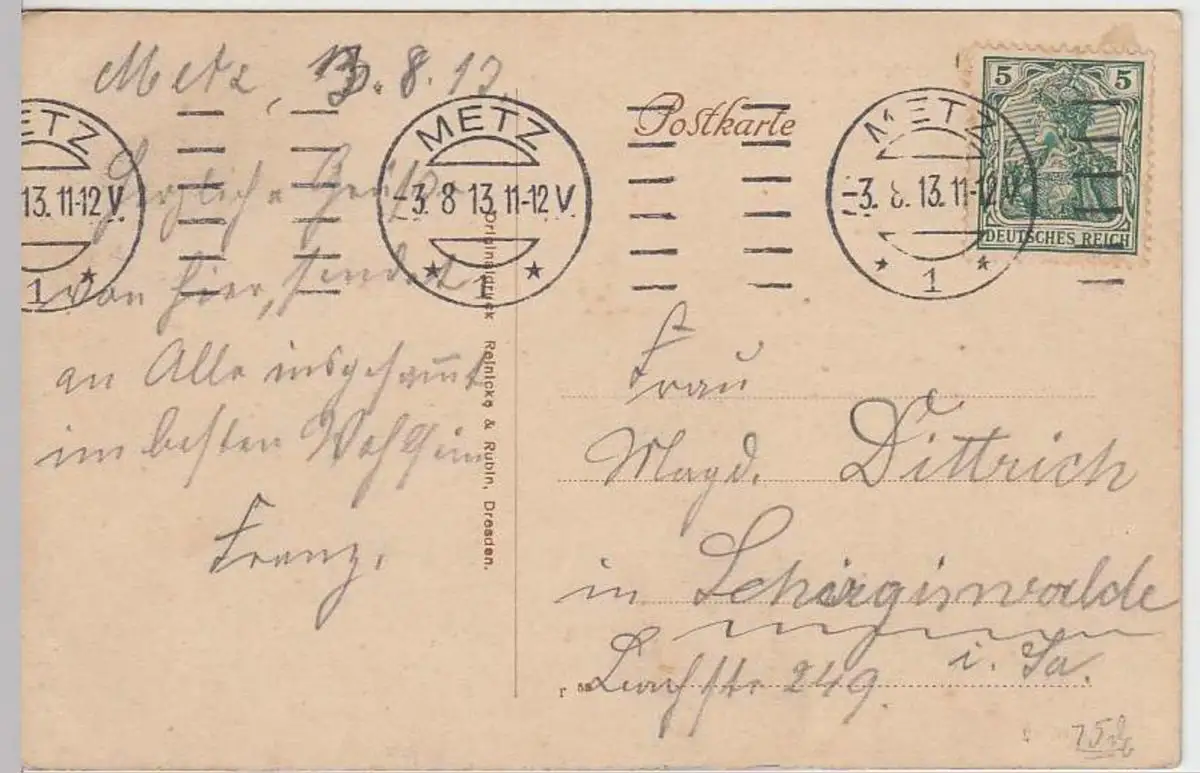 Metz, 3.8.13.
Postkarte
5 5
DEUTSCHES REICH
METZ
13.11-12 V.
1
METZ
-3.8 13.11-12 V.
1
METZ
-3.8.13.11-12 V.
1
Herzliche Grüße
von hier, sendet
an Alle insgesamt
im besten Wohlsein
Franz.
Originaldruck Reinicke & Rubin, Dresden.
Frau
Magd. Dittrich
in Schirgiswalde
i. Sa.
249.